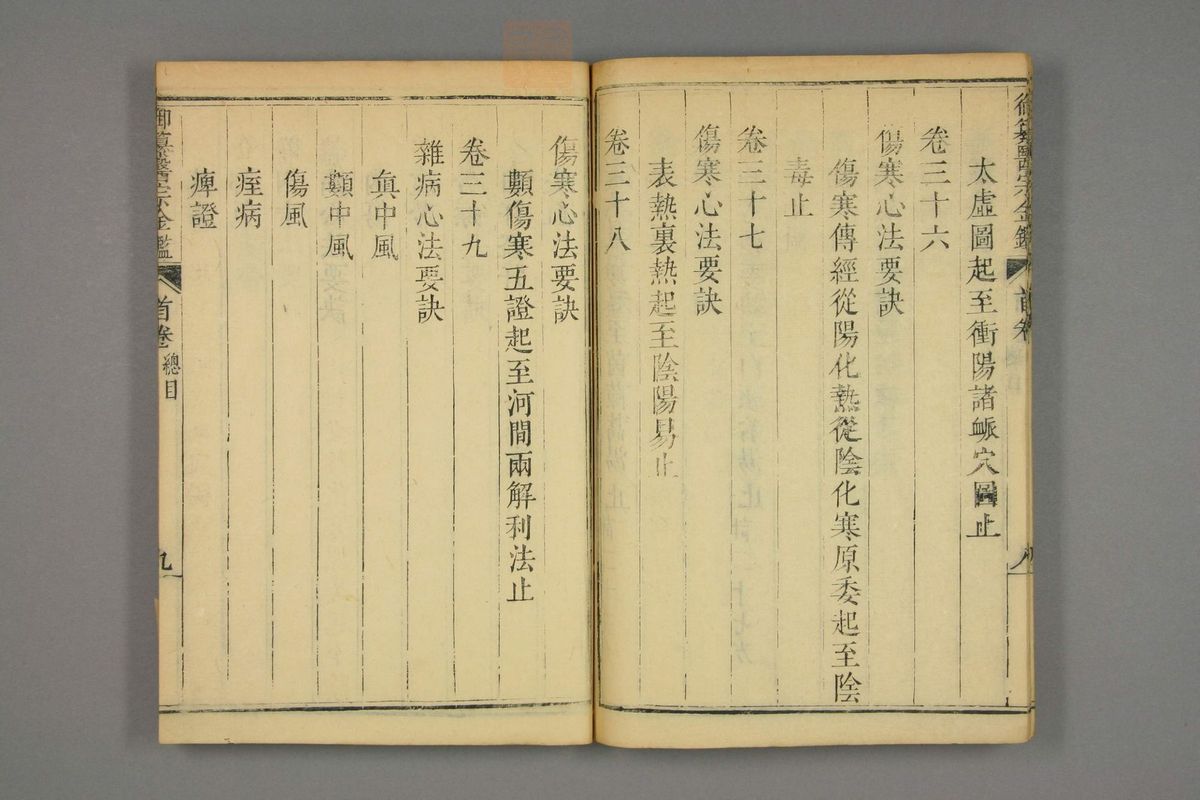 御纂醫宗金鑑
首卷
太虛圖起至衝陽諸脈穴圖止
卷三十六
傷寒心法要訣
傷寒傳經從陽化熱從陰化寒原委起至陰
毒止
卷三十七
傷寒心法要訣
表熱裏熱起至陰陽易止
卷三十八
傷寒心法要訣
類傷寒五證起至河間兩解利法止
卷三十九
雜病心法要訣
眞中風
類中風
傷風
痙病
痺證
御纂醫宗金鑑
首卷 總目
九